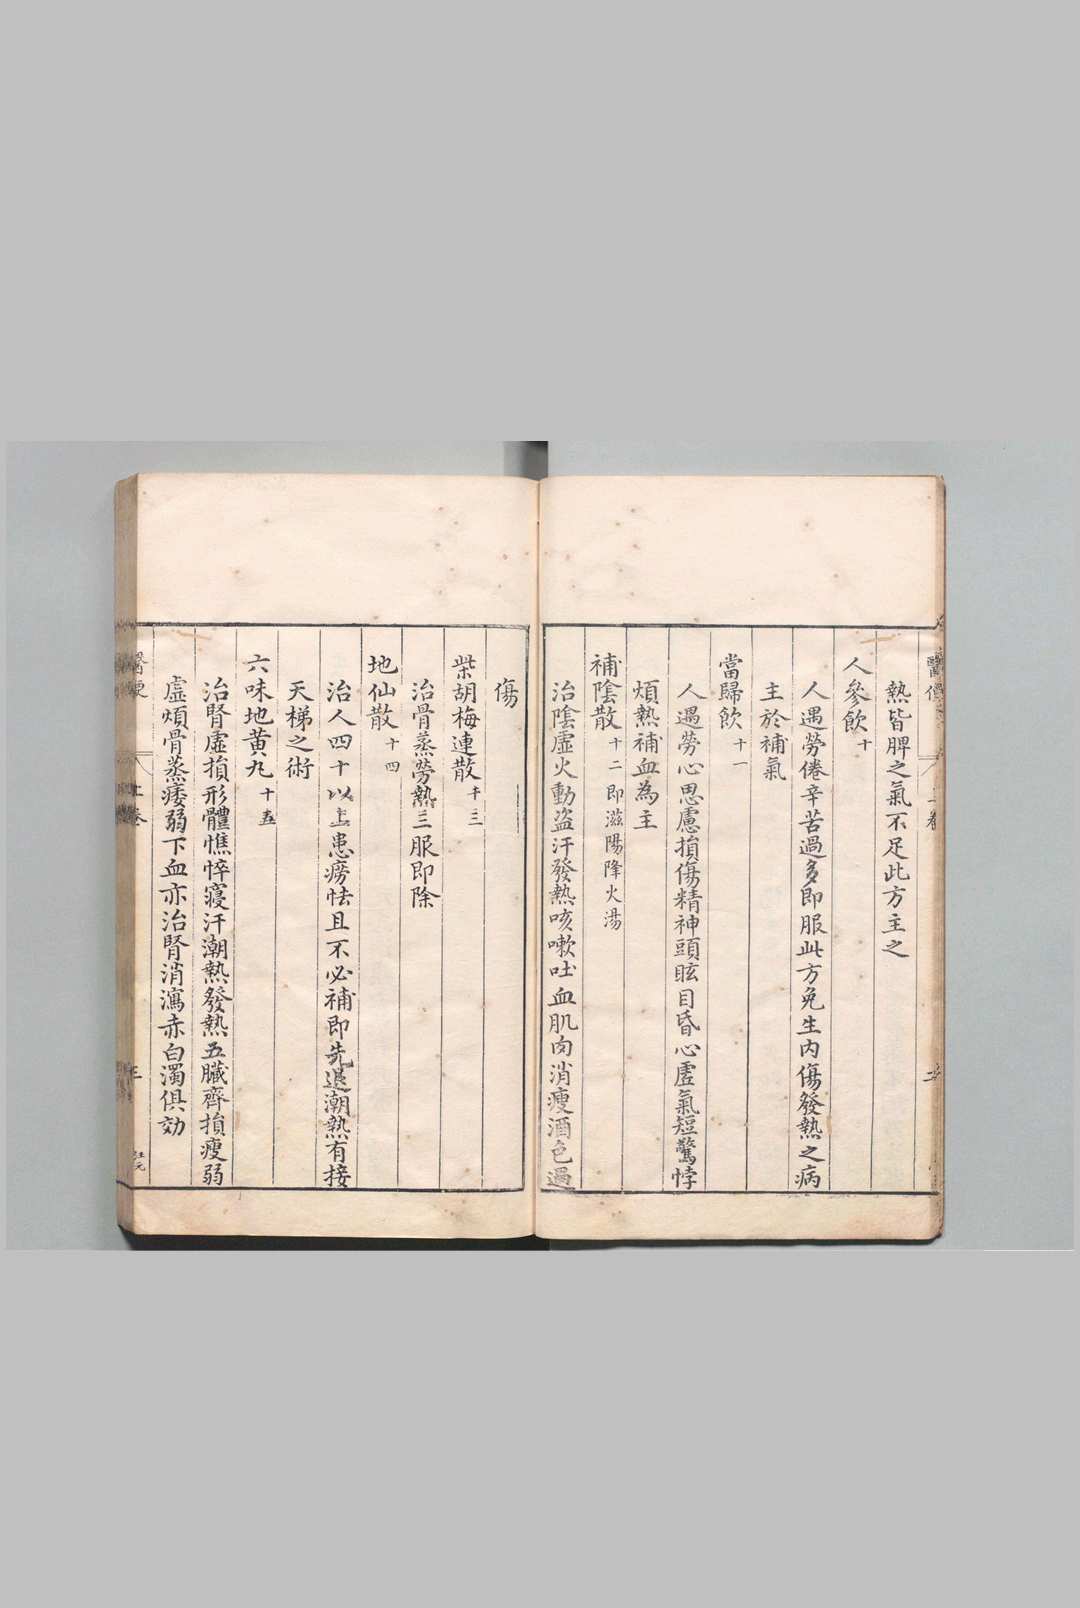 熱皆脾之氣不足此方主之
人參飲十
人遇勞倦辛苦過多即服此方免生内傷發熱之病
主於補氣
當歸飲十一
人遇勞心思慮損傷精神頭眩目昏心虛氣短驚悸
煩熱補血為主
補陰散十二即滋陽降火湯
治陰虛火動盗汗發熱咳嗽吐血肌肉消瘦酒色過
傷
柴胡梅連散十三
治骨蒸勞熱三服即除
地仙散十四
治人四十以上患癆怯且不必補即先退潮熱有接
天梯之術
六味地黄丸十五
治腎虛損形體憔悴寢汗潮熱發熱五臟齊損瘦弱
虛煩骨蒸痿弱下血亦治腎消瀉赤白濁俱効